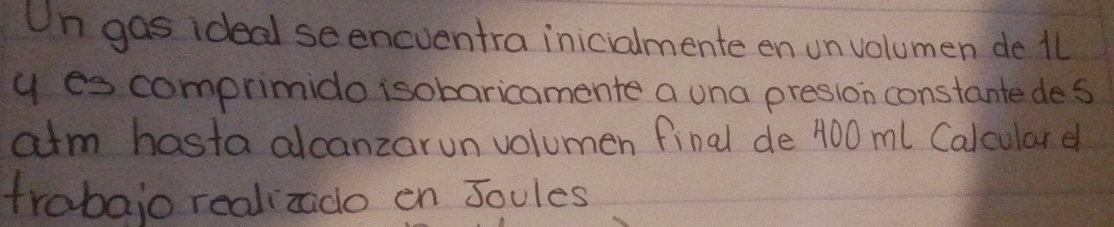 Un gas ideal se encuentra inicialmente en un volumen de 1L
y es comprimido isobaricamente a una presión constante de 5
atm hasta alcanzar un volumen final de 400 ml Calcular el
trabajo realizado en Joules